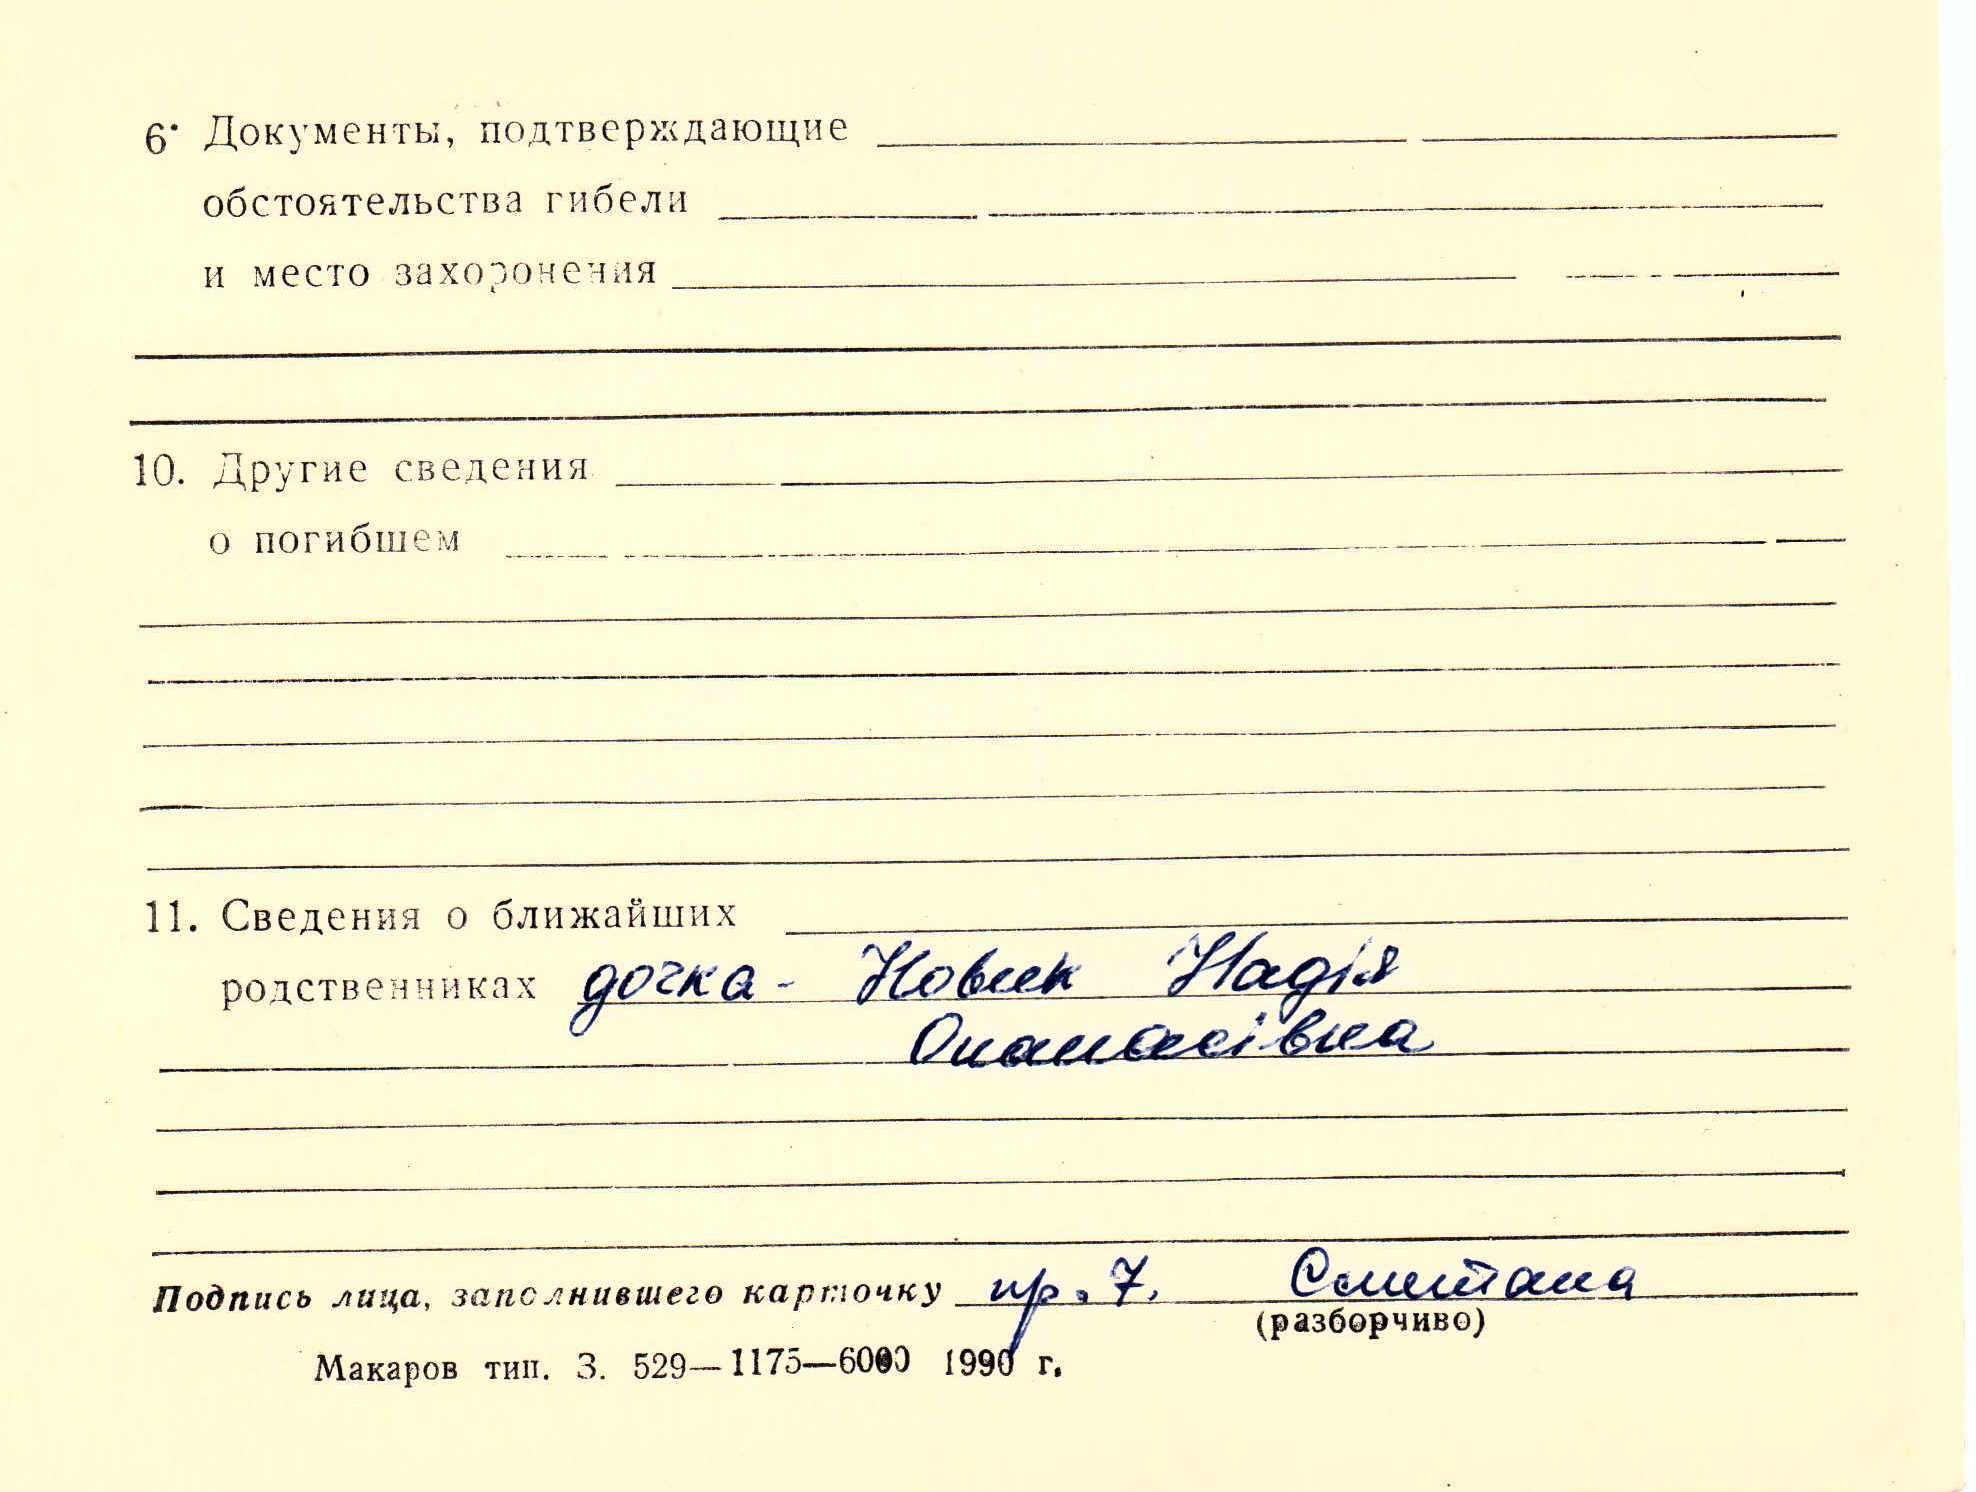 6. Документы, подтверждающие
обстоятельства гибели
и место захоронения
10. Другие сведения
о погибшем
11. Сведения о ближайших
родственниках дочка - Новик Надія
Опанасівна
Подпись лица, заполнившего карточку пр. 7. Сметана
(разборчиво)
Макаров тип. З. 529—1175—6000 1990 г.